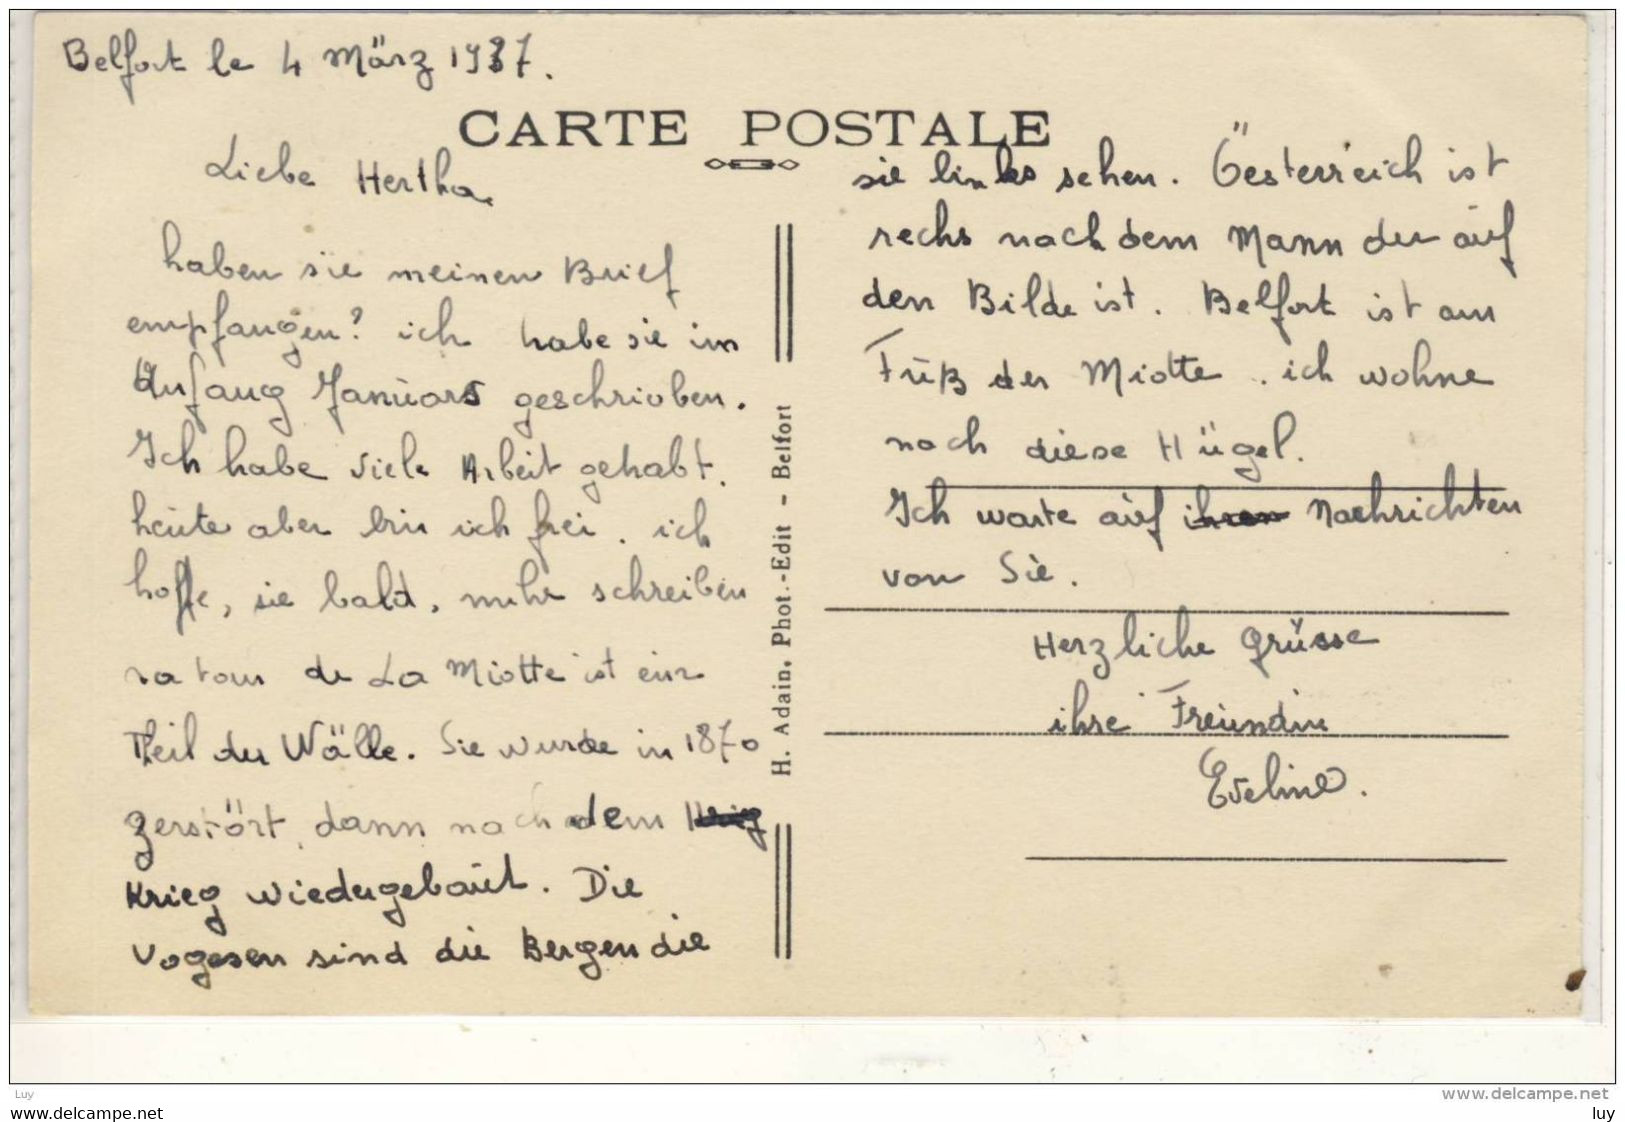 Belfort le 4 März 1937.
CARTE POSTALE
Liebe Hertha
haben sie meinen Brief
empfangen? ich habe sie im
Anfang Januars geschrieben.
Ich habe viele Arbeit gehabt.
heute aber bin ich frei. ich
hoffe, sie bald, mehr schreiben
La tour de La Miotte ist ein
Theil der Wälle. Sie wurde in 1870
zerstört, dann nach dem
Krieg wiedergebaut. Die
Vogesen sind die Bergen die
H. Adain. Phot.-Edit - Belfort
sie links sehen. Öesterreich ist
rechs nach dem Mann der auf
den Bilde ist. Belfort ist am
Fuß der Miotte. ich wohne
nach diese Hügel.
Ich warte auf ihren Nachrichten
von Sie.
Herzliche Grüsse
ihre Freundin
Eveline.
www.delcampe.net
Luy
www.delcampe.net
luy